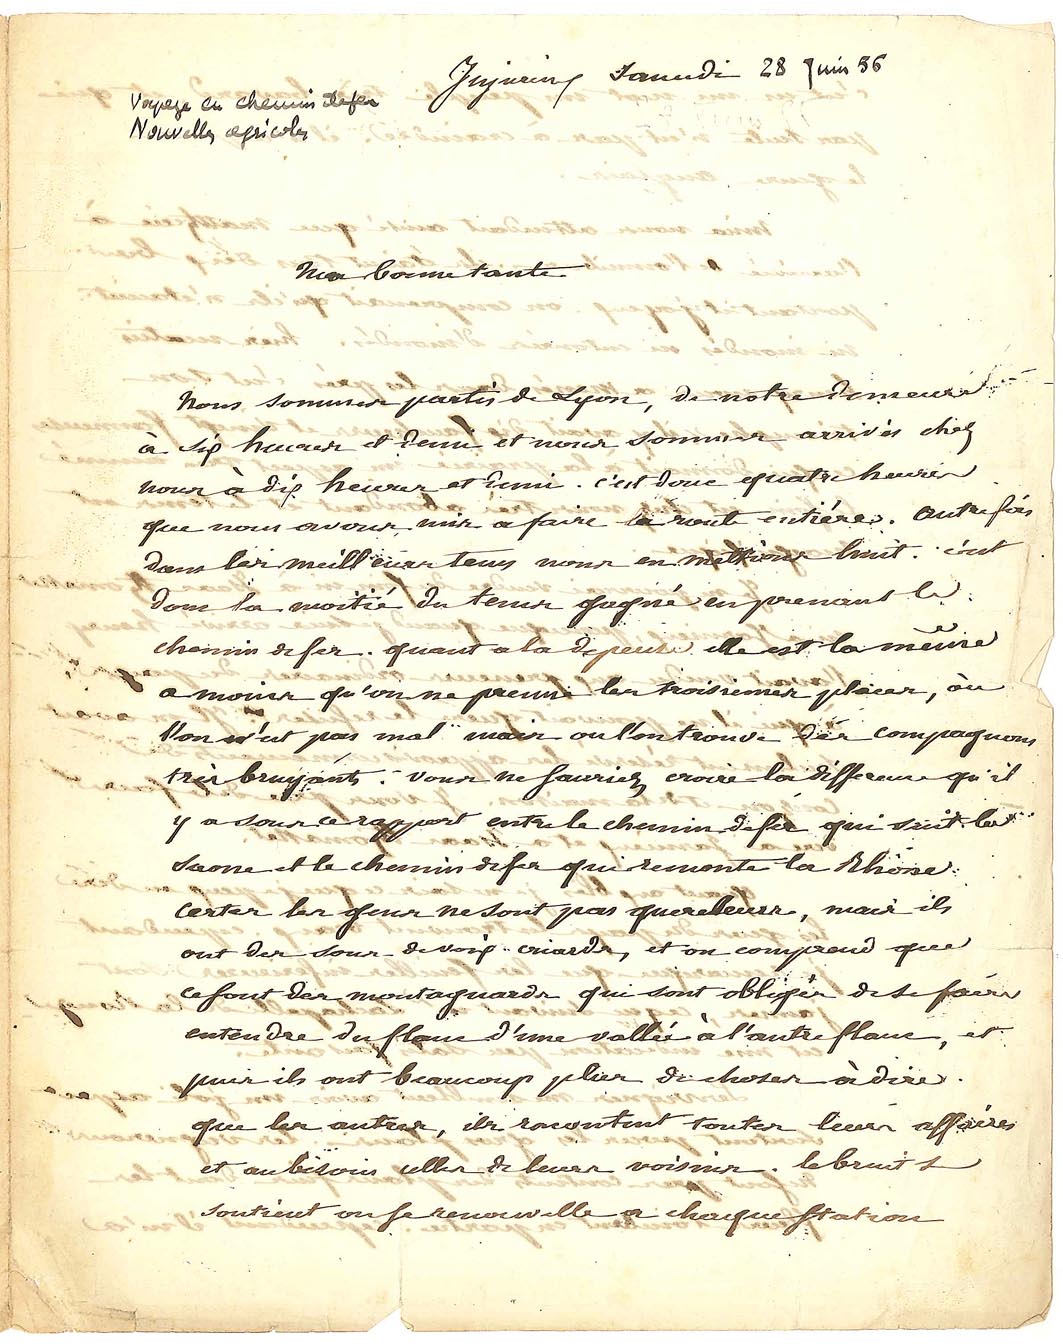 Jujurieux Samedi 28 Juin 56
Voyage en chemin de fer
Nouvelles agricoles
Ma bonne tante
Nous sommes partis de Lyon, de notre demeure
à six heures et demi et nous sommes arrivés chez
nous à dix heures et demi. c'est donc quatre heures
que nous avons mis a faire la route entière. Autrefois
dans les meilleurs tems nous en mettions huit. c'est
donc la moitié du tems gagné en prenant le
chemin de fer. quant a la depense elle est la même
a moins qu'on ne prenne les troisiemes places, où
l'on n'est pas mal mais ou l'on trouve des compagnons
très bruyants. vous ne sauriez croire la difference qu'il
y a sous ce rapport entre le chemin de fer qui suit la
Saone et le chemin de fer qui remonte le Rhône.
Certes les gens ne sont pas querelleurs, mais ils
ont des sons de voix criards, et on comprend que
ce sont des montagnards qui sont obligés de se faire
entendre du flanc d'une vallée à l'autre flanc, et
puis ils ont beaucoup plus de choses à dire.
que les autres, ils racontent toutes leurs affaires
et au besoin celles de leurs voisins. le bruit se
soutient ou se renouvelle a chaque station